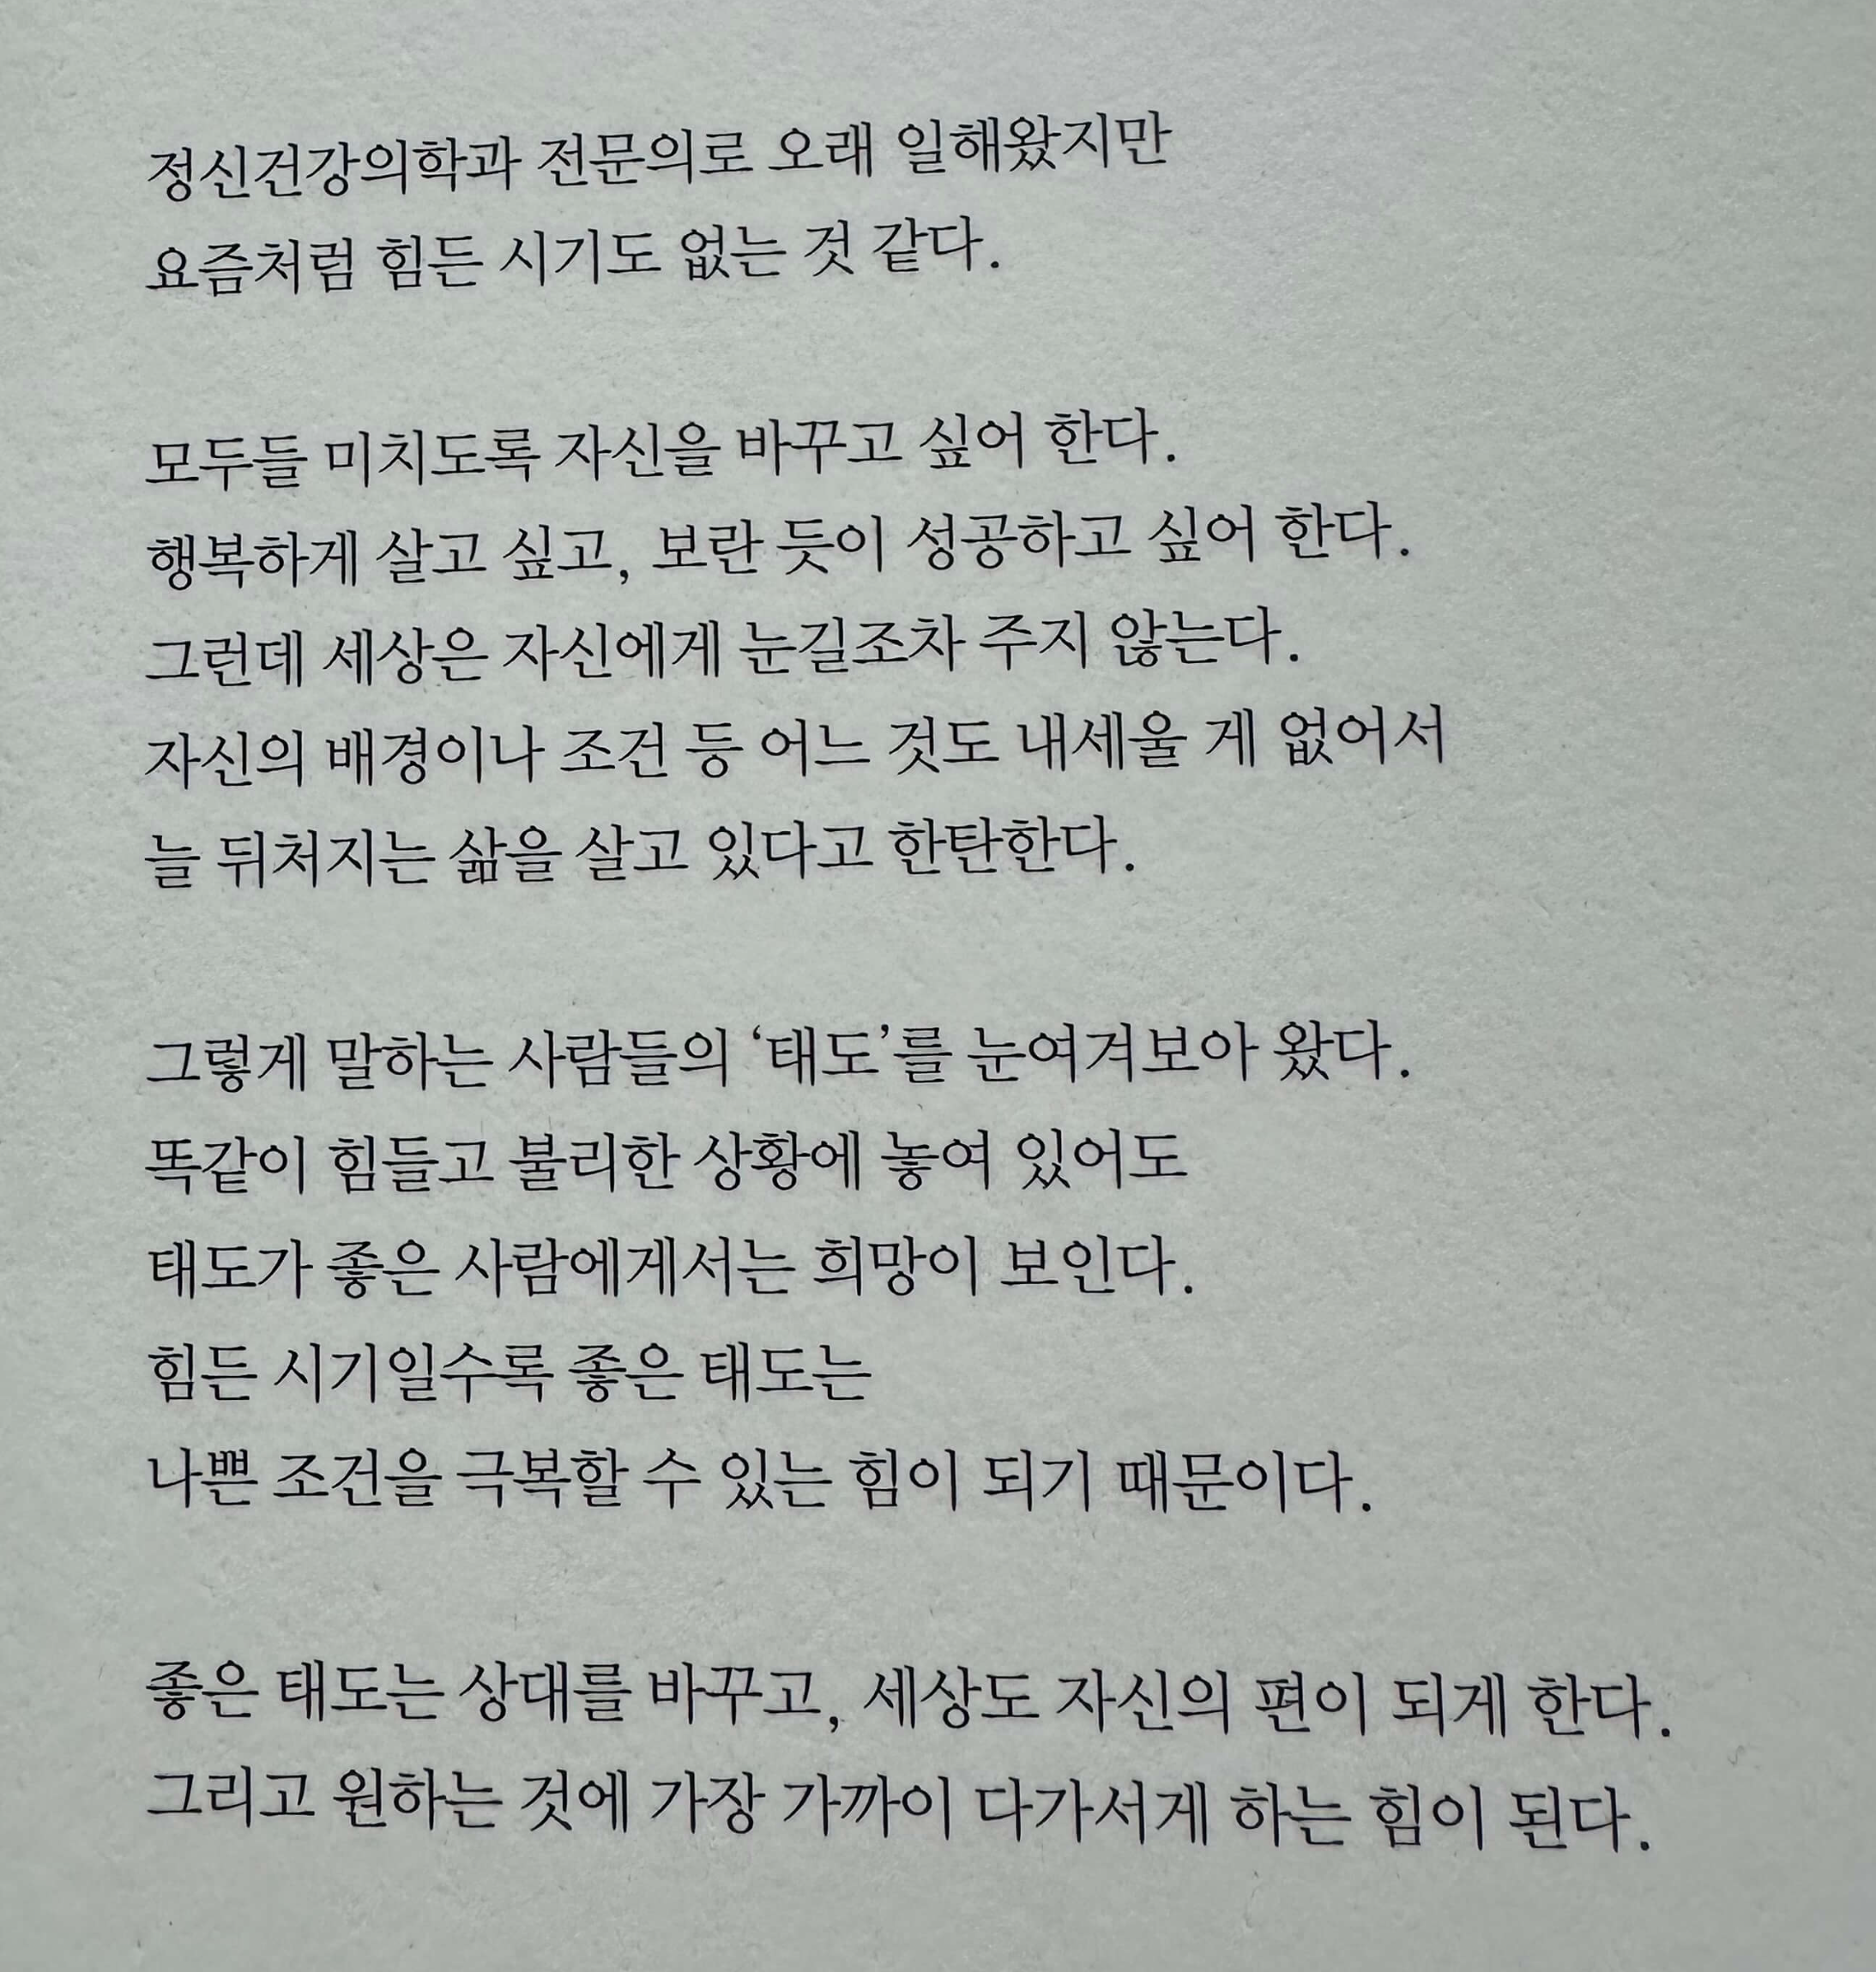 정신건강의학과 전문의로 오래 일해왔지만
요즘처럼 힘든 시기도 없는 것 같다.
모두들 미치도록 자신을 바꾸고 싶어 한다.
행복하게 살고 싶고, 보란 듯이 성공하고 싶어 한다.
그런데 세상은 자신에게 눈길조차 주지 않는다.
자신의 배경이나 조건 등 어느 것도 내세울 게 없어서
늘 뒤처지는 삶을 살고 있다고 한탄한다.
그렇게 말하는 사람들의 ‘태도’를 눈여겨보아 왔다.
똑같이 힘들고 불리한 상황에 놓여 있어도
태도가 좋은 사람에게서는 희망이 보인다.
힘든 시기일수록 좋은 태도는
나쁜 조건을 극복할 수 있는 힘이 되기 때문이다.
좋은 태도는 상대를 바꾸고, 세상도 자신의 편이 되게 한다.
그리고 원하는 것에 가장 가까이 다가서게 하는 힘이 된다.